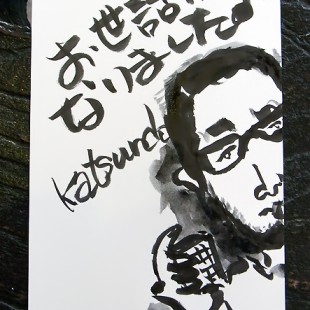 お世話に
なりました。
katsundo